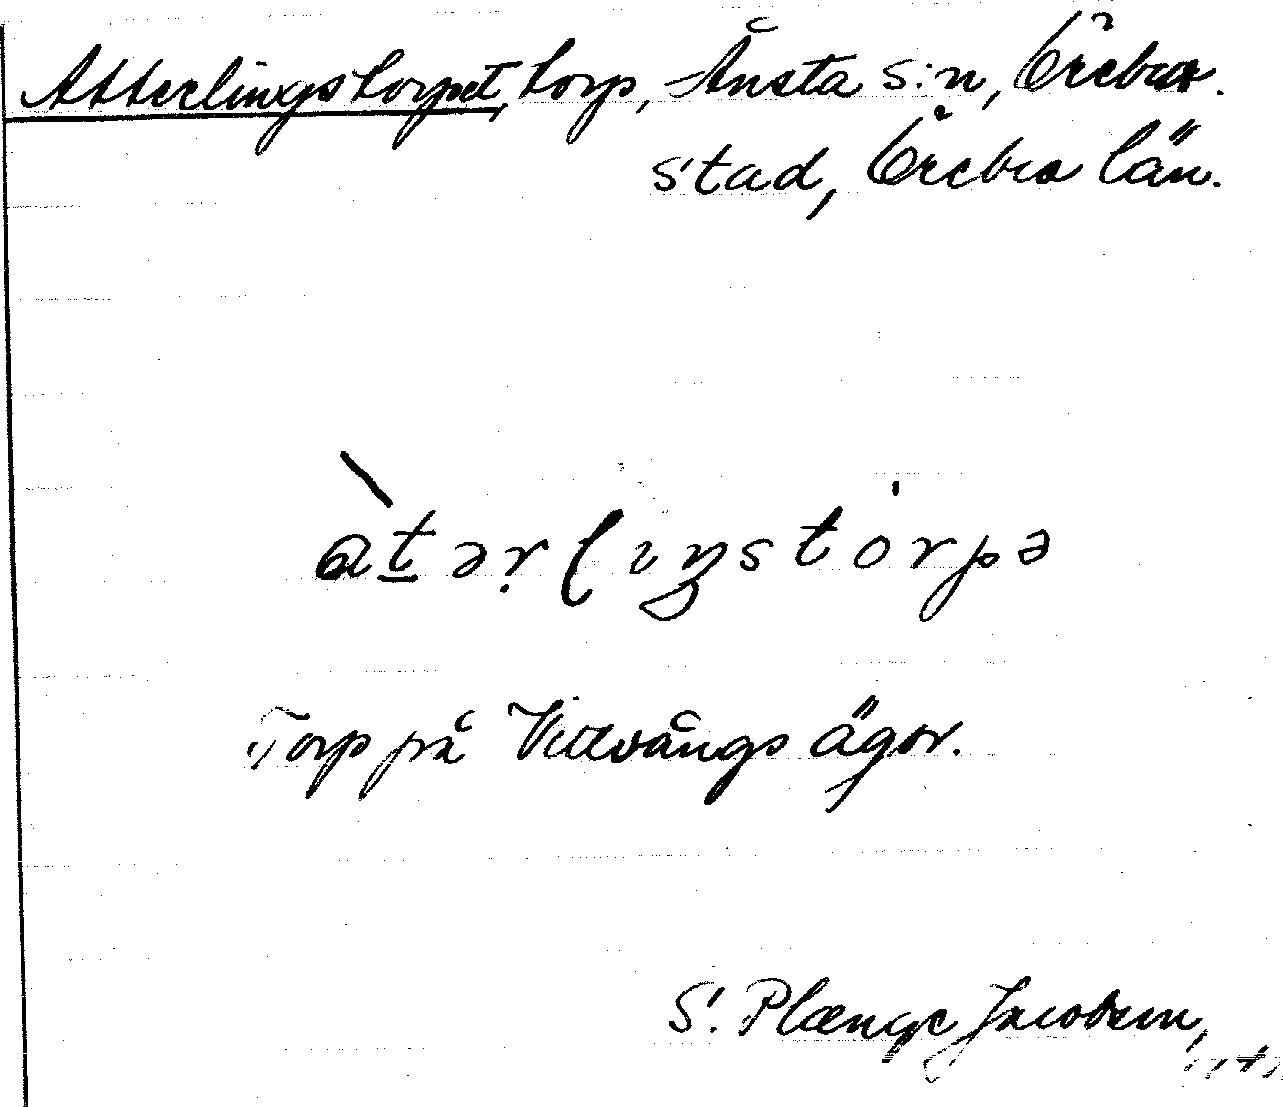 Atterlingstorpet, torp, Ånsta s:n, Örebro.
stad, Örebro län.
àt̲ərlıŋstȯrpə
Torp på Vittvångs ägor.
S. Plænge Jacobson,